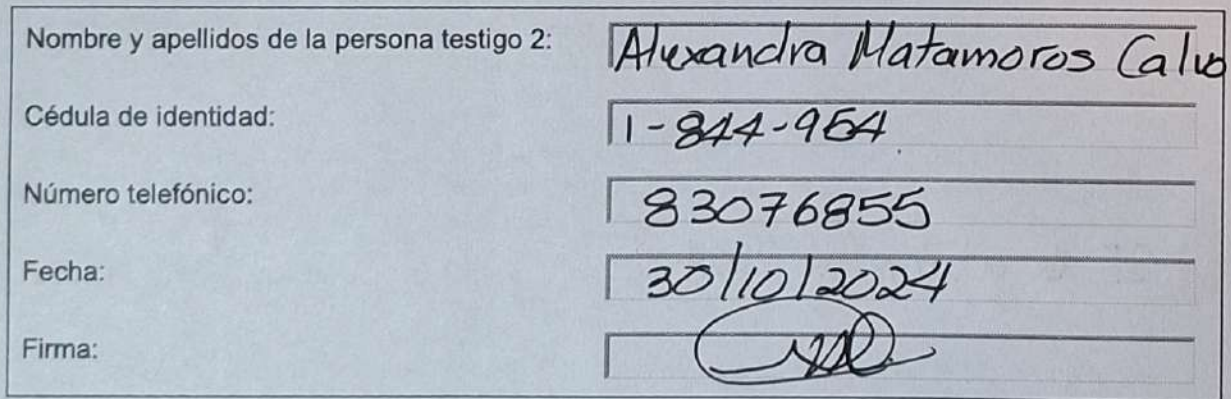 Nombre y apellidos de la persona testigo 2: Alexandra Matamoros Calvo
Cédula de identidad: 1-844-964
Número telefónico: 83076855
Fecha: 30/10/2024
Firma: